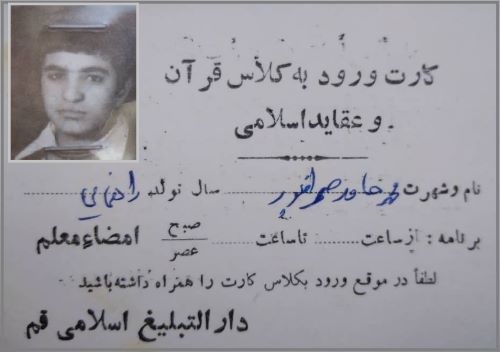 کارت ورود به کلاس قرآن
و عقاید اسلامی
نام و شهرت محمد خاور سال تولد راهنمایی
برنامه: از ساعت تا ساعت صبح عصر امضاء معلم
لطفاً در موقع ورود بکلاس کارت را همراه داشته باشید
دار التبلیغ اسلامی قم